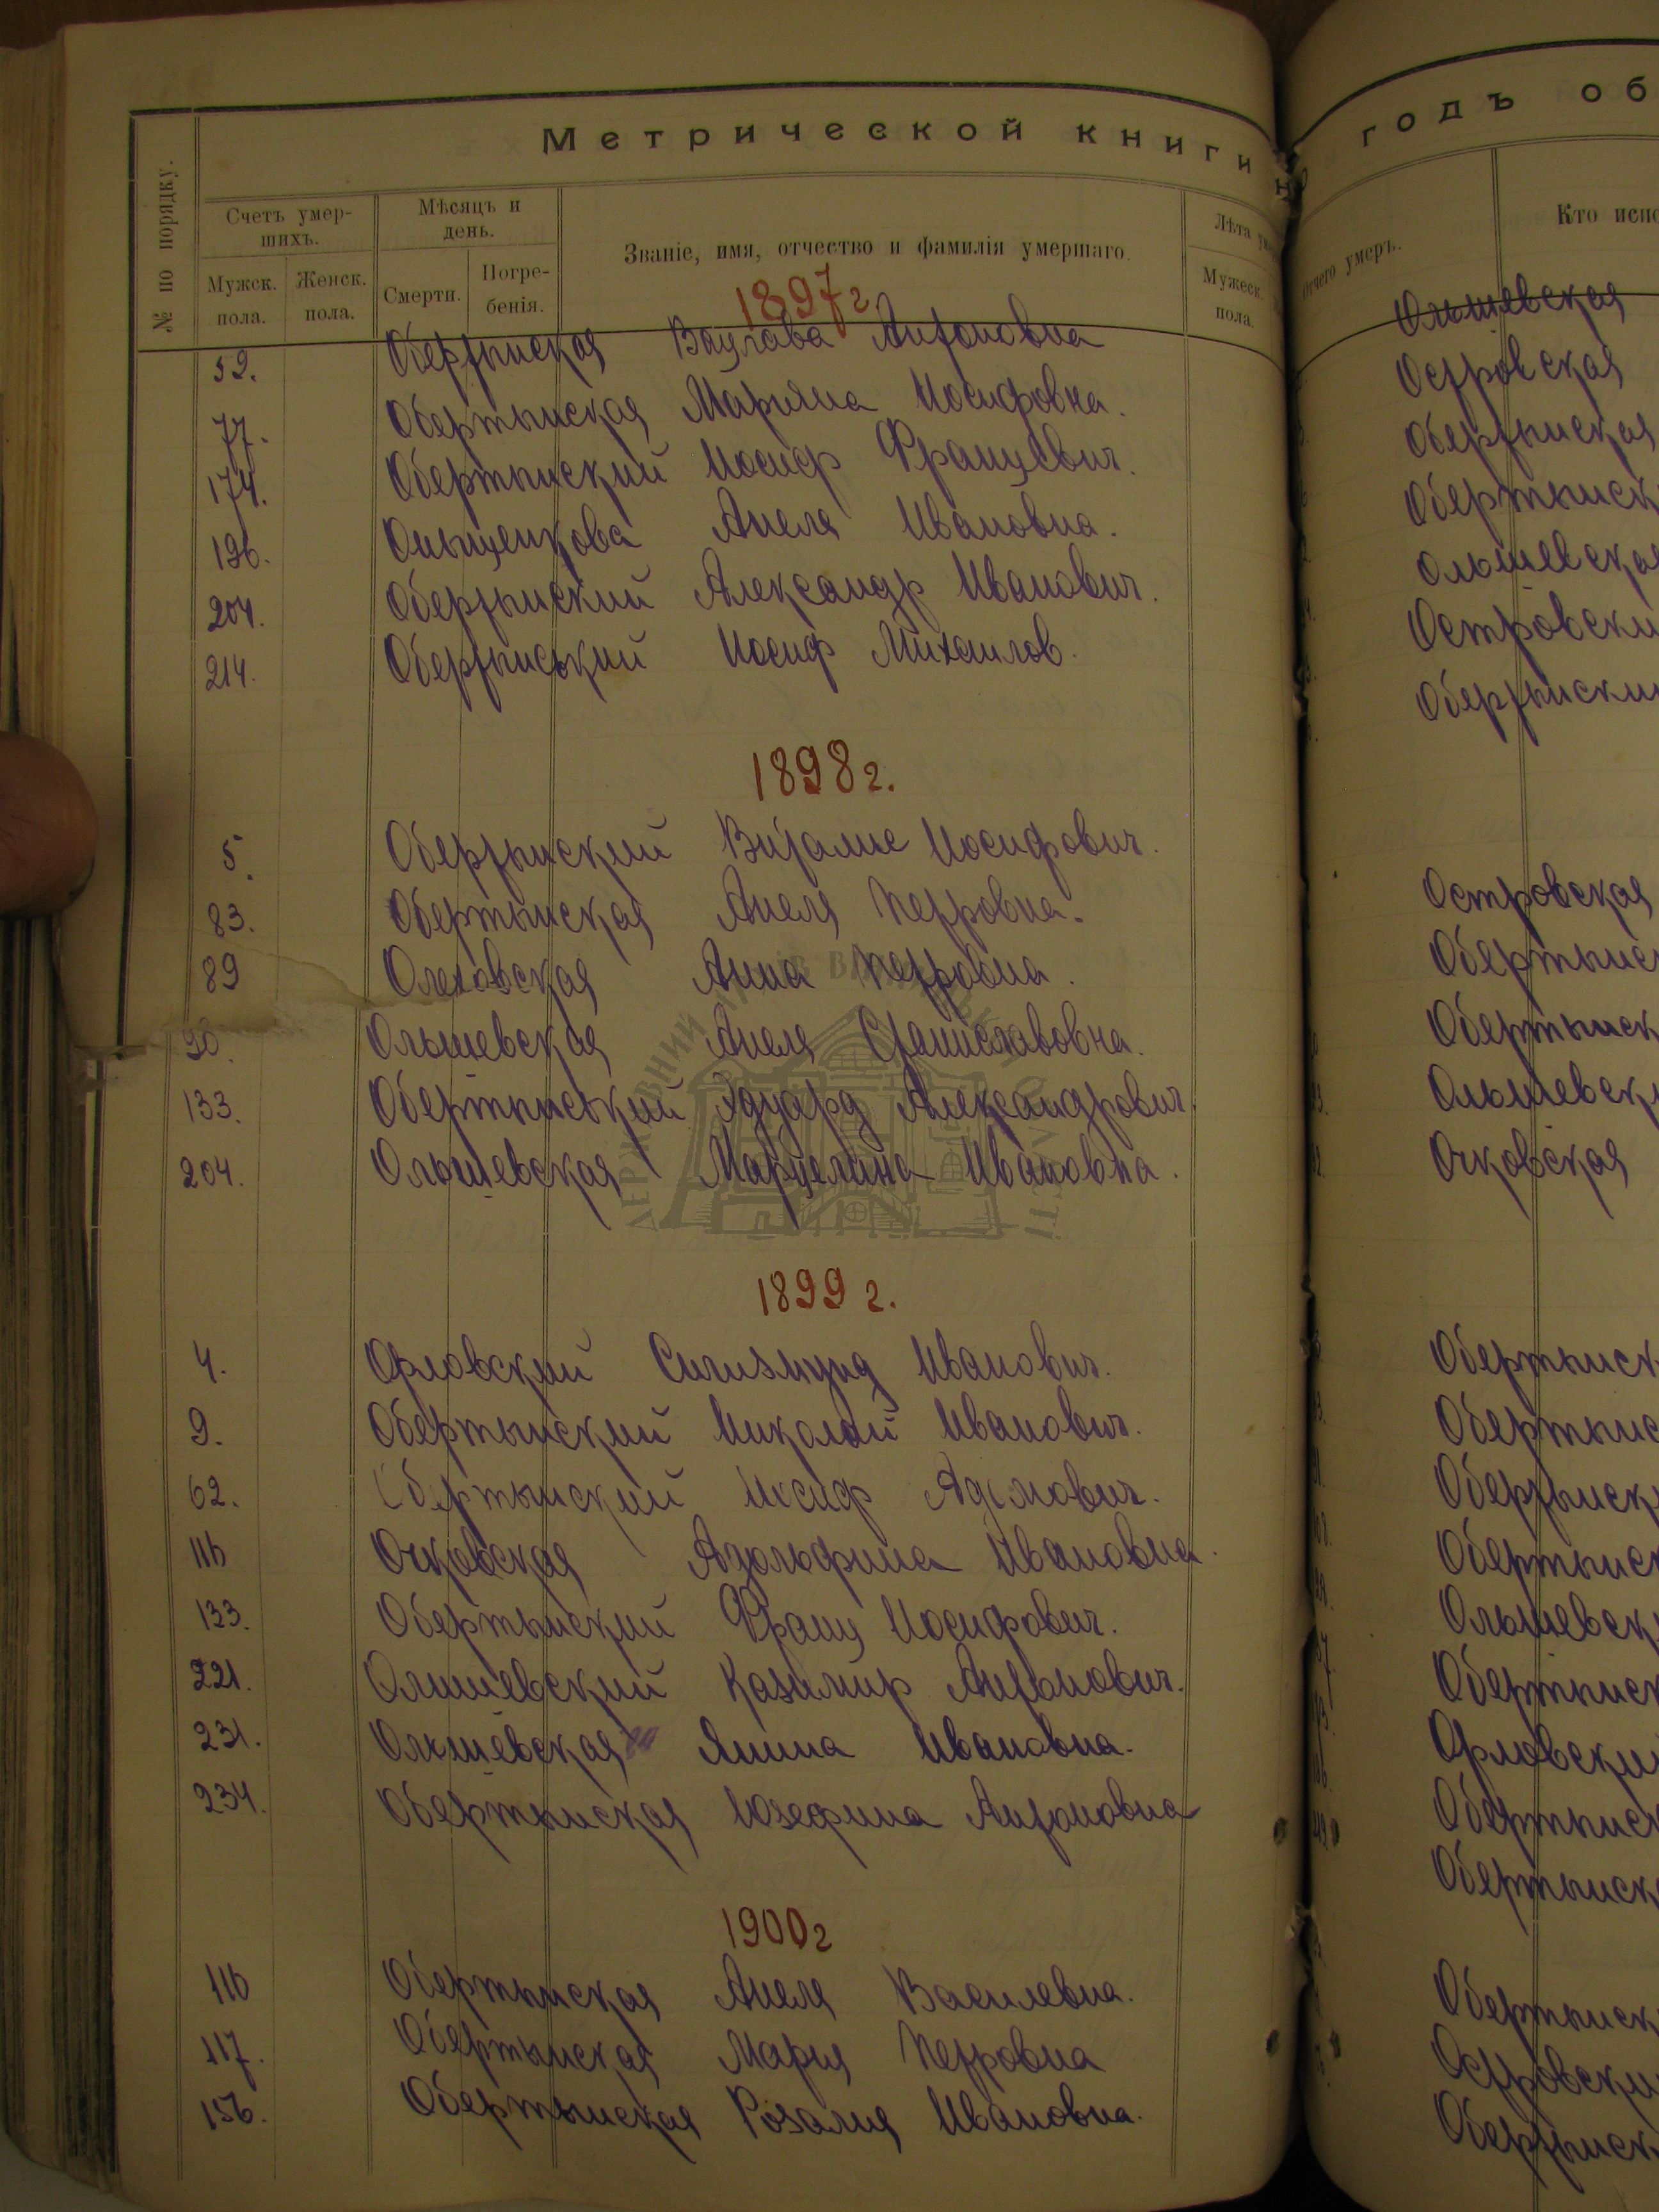 Метрической книги н
№ по порядку.
Счетъ умер-
шихъ.
Мужск.
пола.
Женск.
пола.
Мѣсяцъ и
день.
Смерти.
Погре-
бенія.
Званіе, имя, отчество и фамилія умершаго.
Лѣта
Мужеск.
пола.
1897 г
52. Обертынская Вацлава Антоновна
77. Обертынская Марияна Иосифовна.
174. Обертынский Иосиф Францевич.
196. Анеля Ивановна.
204. Обертынский Александр Иванович.
214. Обертинський Иосиф Михаилов.
1898 г.
5. Обертынский Иосифович.
83. Обертынская Анеля Петровна.
89 Олеховская Анна Петровна.
90. Ольшевская Анеля Станиславовна.
133. Обертынський Эдуард Александрович.
204. Ольшевская Марцелина Ивановна.
1899 г.
4. Орловский Сигизмунд Иванович.
9. Обертынский Николай Иванович.
62. Обертынский Иосиф Адамович.
116 Очковская Адольфина Ивановна.
133. Обертынский Франц Иосифович.
221. Олшиевский Казимир Антонович.
231. Ольшевская Янина Ивановна.
234. Обертынская Юзефина Антоновна
1900 г
116 Обертынская Анеля Василевна.
117. Обертынская Мария Петровна
156. Обертынская Розалия Ивановна.
годъ об
отчего умеръ.
Кто испо
Ольшевская
Островская
Обертынская
Обертынск
Ольшевская
Островски
Обертынский
Островская
Обертынс
Обертынск
Ольшевск
Очковская
Обертынск
Обертынс
Обертынск
Обертынск
Ольшевск
Обертынск
Орловский
Обертынск
Обертынск
Обертынск
Островски
Обертынск